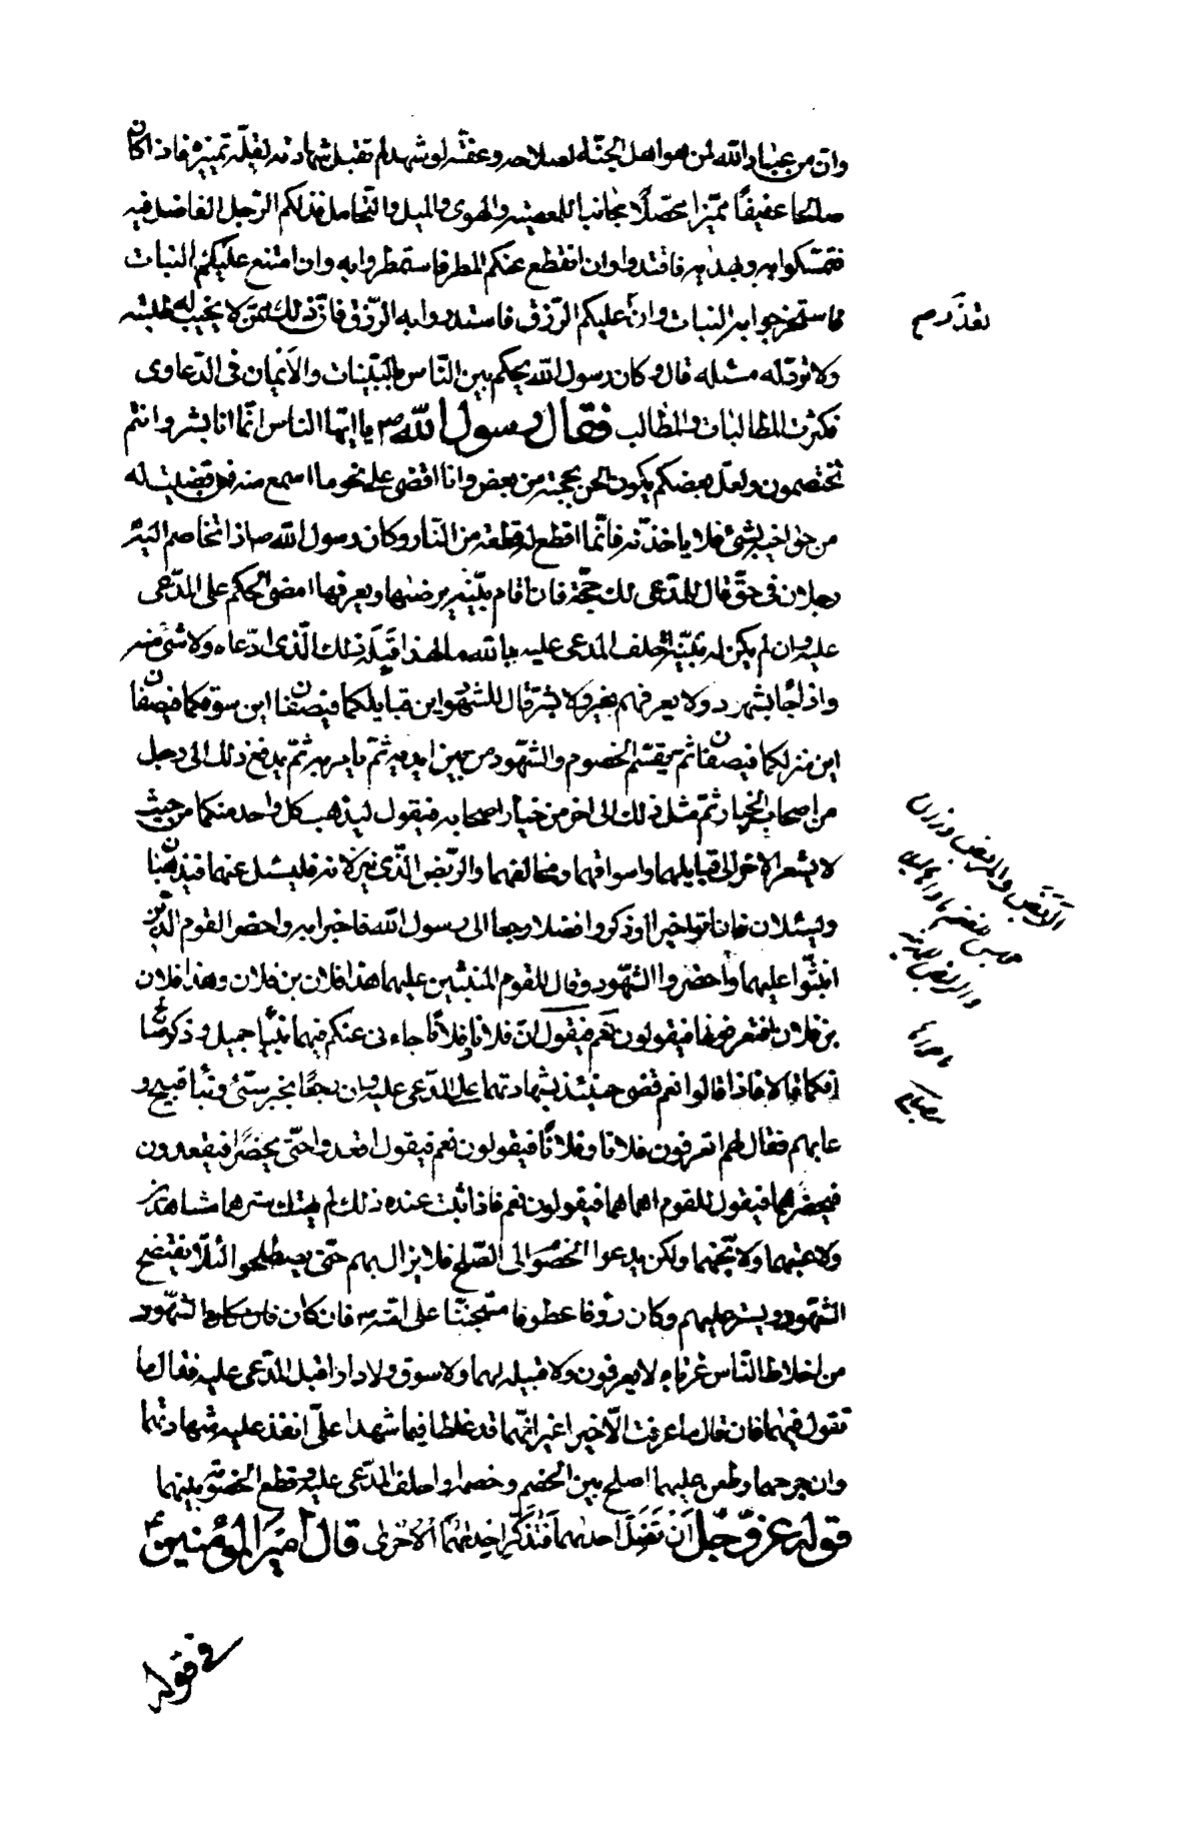 وان من عباد الله لمن هو اهل الجنة لصلاحه وعفته لو شهد لم تقبل شهادته لقلة تميزه فاذا كان
صالحا عفيفًا مميزا محصّلًا مجانبا للمعصية والهوى والميل والتحامل فذلكم الرّجل الفاضل فبه
فتمسّكوا وبهديه فاقتدوا وان انقطع عنكم المطر فاستمطروا به وان امتنع عليكم النبات
فاستخرجوا به النبات وان عليكم الرّزق فاستدروا به الرّزق فانّ ذلك ممّن لا يخيب له طلبته
تعذّر م
ولا تردّ له مسئله قال وكان رسول الله يحكم بين النّاس بالبيّنات والأيمان في الدّعاوى
فكثرت المطالبات والمظالب فقال رسول الله ص يا ايّها الناس انّما انا بشر وانتم
تختصمون ولعلّ بعضكم يكون الحن بحجته من بعض وانا اقضى على نحو ما اسمع منه فمن قضيت له
من حق اخيه بشئ فلا ياخذنّه فانّما اقطع له قطعة من النّار وكان رسول الله ص اذا تخاصم اليه
رجلان في حقّ قال للمدّعى لك حجّة فان اقام بيّنة يرضيها ويعرفها امضى الحكم على المدّعى
عليه وان لم يكن له بيّنة حلف المدعى عليه بالله ما لهذا قِبَله ذلك الّذى ادّعاه ولا شئ منه
واذا جا بشهود ولا يعرفهم بخير ولا بشرّ قال للشهود اين قبايلكما فيصفان اين سوقكما فيصفان
اين منزلكما فيصفان ثم يقيم الخصوم والشّهود من بين يديه ثمّ يامر به ثمّ يدفع ذلك الى رجل
من اصحابه الخيار ثمّ مثل ذلك الى اخر من خيار اصحابه فيقول ليذهب كل واحد منكما من حيث
لا يشعر الاخر الى قبايلهما واسواقهما ومحالهما والرّبض الّذى ينزلانه فليسئل عنهما فيذهبان
ويسئلان فان اتوا خيرا او ذكروا فضلا رجعا الى رسول الله فاخبراه به واحضر القوم الّذين
اثنوا عليهما واحضروا الشّهود وقال للقوم المثنين عليهما هذا فلان بن فلان وهذا فلان
بن فلان اتعرفونهما فيقولون نعم فيقول انّ فلانا وفلانًا جاءنى عنكم فيهما بنبأ جميل وذكر صالح
افكما قالا فاذا قالوا نعم قضى حينئذ بشهادتهما على المدّعى عليه وان رجعا بخبر سيّئ ونبأ قبيح
عابهم فقال لهم اتعرفون فلانا وفلانًا فيقولون نعم فيقول اقعدوا حتّى يحضرا فيقعدون
فيحضرهما فيقول للقوم اهما هما فيقولون نعم فاذا ثبت عنده ذلك لم يهتك ستر هما
ولا عيبهما ولا يخجلهما ولكن يدعوا الخصوم الى الصّلح فلا يزال بهم حتّى يصطلحوا لئلّا يفتضح
الشّهود ويستر عليهم وكان رؤفا عطوفا متحننا على امّته فان كان الشّهود
من اخلاط النّاس غرباء لا يعرفون ولا قبيله لهما ولا سوق ولا دار اقبل على المدّعى عليه فقال ما
تقول فيهما فان قال ما عرفت الّا خيرا غير انّهما قد غلطا فيما شهدا علىّ انفذ عليه شهادتهما
وان جرحهما وطعن عليهما اصلح بين الخصم وخصمه واحلف المدّعى عليه وقطع الخصومة بينهما
قوله عزّ وجلّ أنْ تَضِلَّ احديهما فَتُذَكِّرَ احديهما الأخرى قال امير المؤمنين ع
في قوله